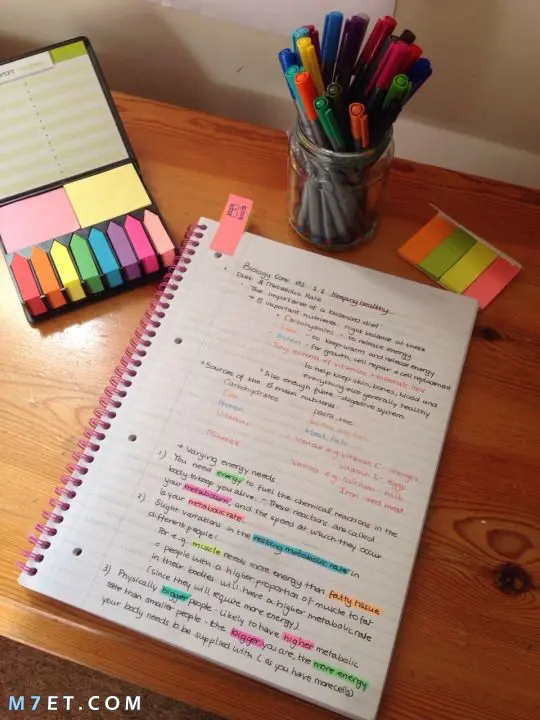 B1
Biology Core B1 1.1 Keeping healthy
Diet & Metabolic Rate
• The importance of a balanced diet
→ 5 important nutrients, right balance of these
• Carbohydrates - to release energy
- to keep warm and release energy
Protein - for growth, cell repair + cell replacement
Tiny amounts of vitamins + minerals
to help keep skin, bones, blood and
everything else generally healthy
* Also enough fibre - digestive system
• Sources of the 5 main nutrients:
Carbohydrates pasta, rice
Fats
Protein
Vitamins - Various e.g. vitamin C - oranges
vitamin D - eggs
Minerals - Various e.g. calcium - milk
Iron - red meat
→ Varying energy needs
1) You need energy to fuel the chemical reactions in the
body to keep you alive. These reactions are called
your metabolism, and the speed at which they occur
is your metabolic rate.
2) Slight variations in the resting metabolic rate in
different people:
For e.g. muscle needs more energy than fatty tissue
- people with a higher proportion of muscle to fat
in their bodies will have a higher metabolic rate
(since they will require more energy).
3) Physically bigger people - likely to have higher metabolic
rate than smaller people - the bigger you are, the more energy
your body needs to be supplied with (as you have more cells)
M7ET.COM